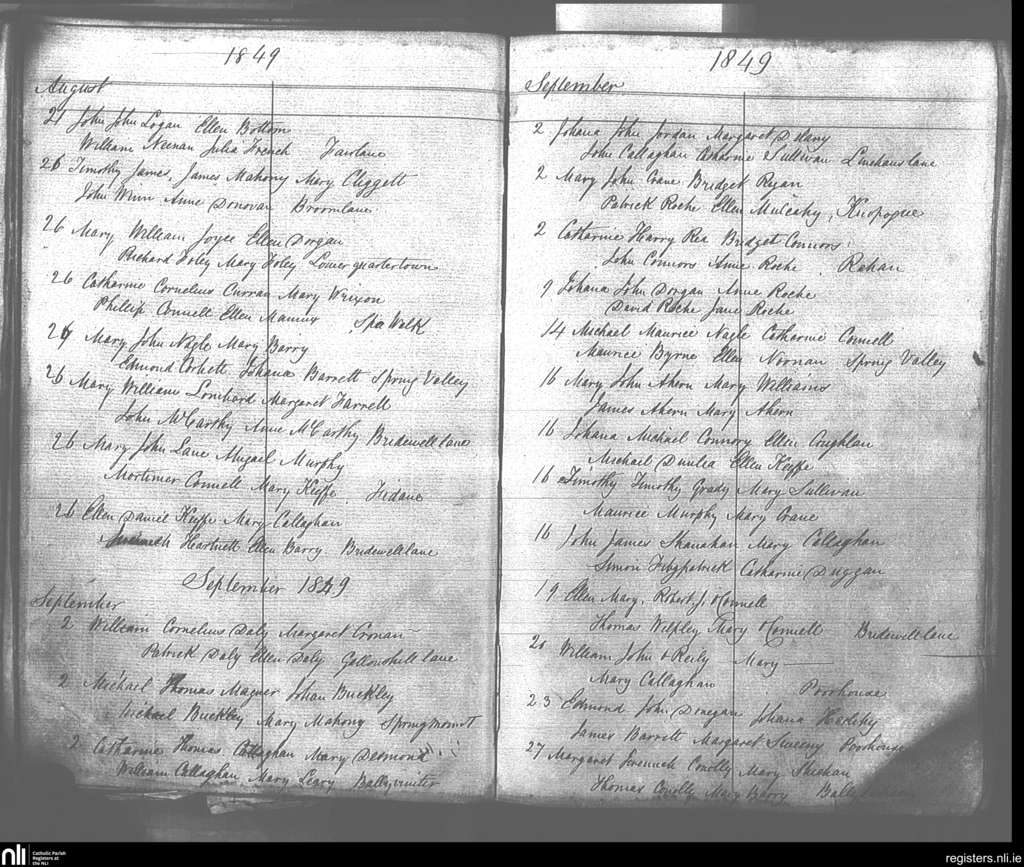 1849
August
21 John John Logan Ellen Bottom
William Neenan Julia French Fairlane
26 Timothy James, James Mahony Mary Cliggett
John Winn Anne Donovan Broomlane
26 Mary William Joyce Ellen Dorgan
Richard Foley Mary Foley Lowerquartertown
26 Catharine Cornelius Curran Mary Wrixon
Phillip Connell Ellen Spa Walk
26 Mary John Nagle Mary Barry
Edmond Corbett Johana Barrett Spring Valley
26 Mary William Lombard Margaret Farrell
John McCarthy Anne McCarthy Bridewell lane
26 Mary John Lane Abigael Murphy
Mortimer Connell Mary Keeffe
26 Ellen Daniel Keeffe Mary Callaghan
Hartnett Ellen Barry Bridewell lane
September 1849
September
2 William Cornelius Daly Margaret Cronan
Patrick Daly Ellen Daly Gallowshill lane
2 Michael Thomas Magner Johan Buckley
Michael Buckley Mary Mahony Springmount
2 Catharine Thomas Callaghan Mary Desmond
William Callaghan Mary Leary Ballyviniter
1849
September
2 Johana John Jordan Margaret Delany
John Callaghan Catharine Sullivan Linehans lane
2 Mary John Crane Bridget Regan
Patrick Roche Ellen Mulcahy, Knopogue
2 Catharine Harry Rea Bridget Connors
John Connors Anne Roche Rahan
9 Johana John Dorgan Anne Roche
David Roche Jane Roche
14 Michael Maurice Nagle Catharine Connell
Maurice Byrne Ellen Noonan Spring Valley
16 Mary John Ahern Mary Williams
James Ahern Mary Ahern
16 Johana Michael Connory Ellen Coughlan
Michael Dunlea Ellen Keeffe
16 Timothy Timothy Grady Mary Sullivan
Maurice Murphy Mary Crane
16 John James Shanahan Mary Callaghan
Simon Fitzpatrick Catharine Duggan
19 Ellen Mary, Robert J. OConnell
Thomas Welpley Mary OConnell Bridewell lane
20 William John OReily Mary
Mary Callaghan Poorhouse
23 Edmond John Donegan Johana
James Barrett Margaret Sweeny Poorhouse
27 Margaret Jeremiah Conolly Mary Sheehan
Thomas Conolly Mary Barry
nli Catholic Parish Registers at the NLI
registers.nli.ie